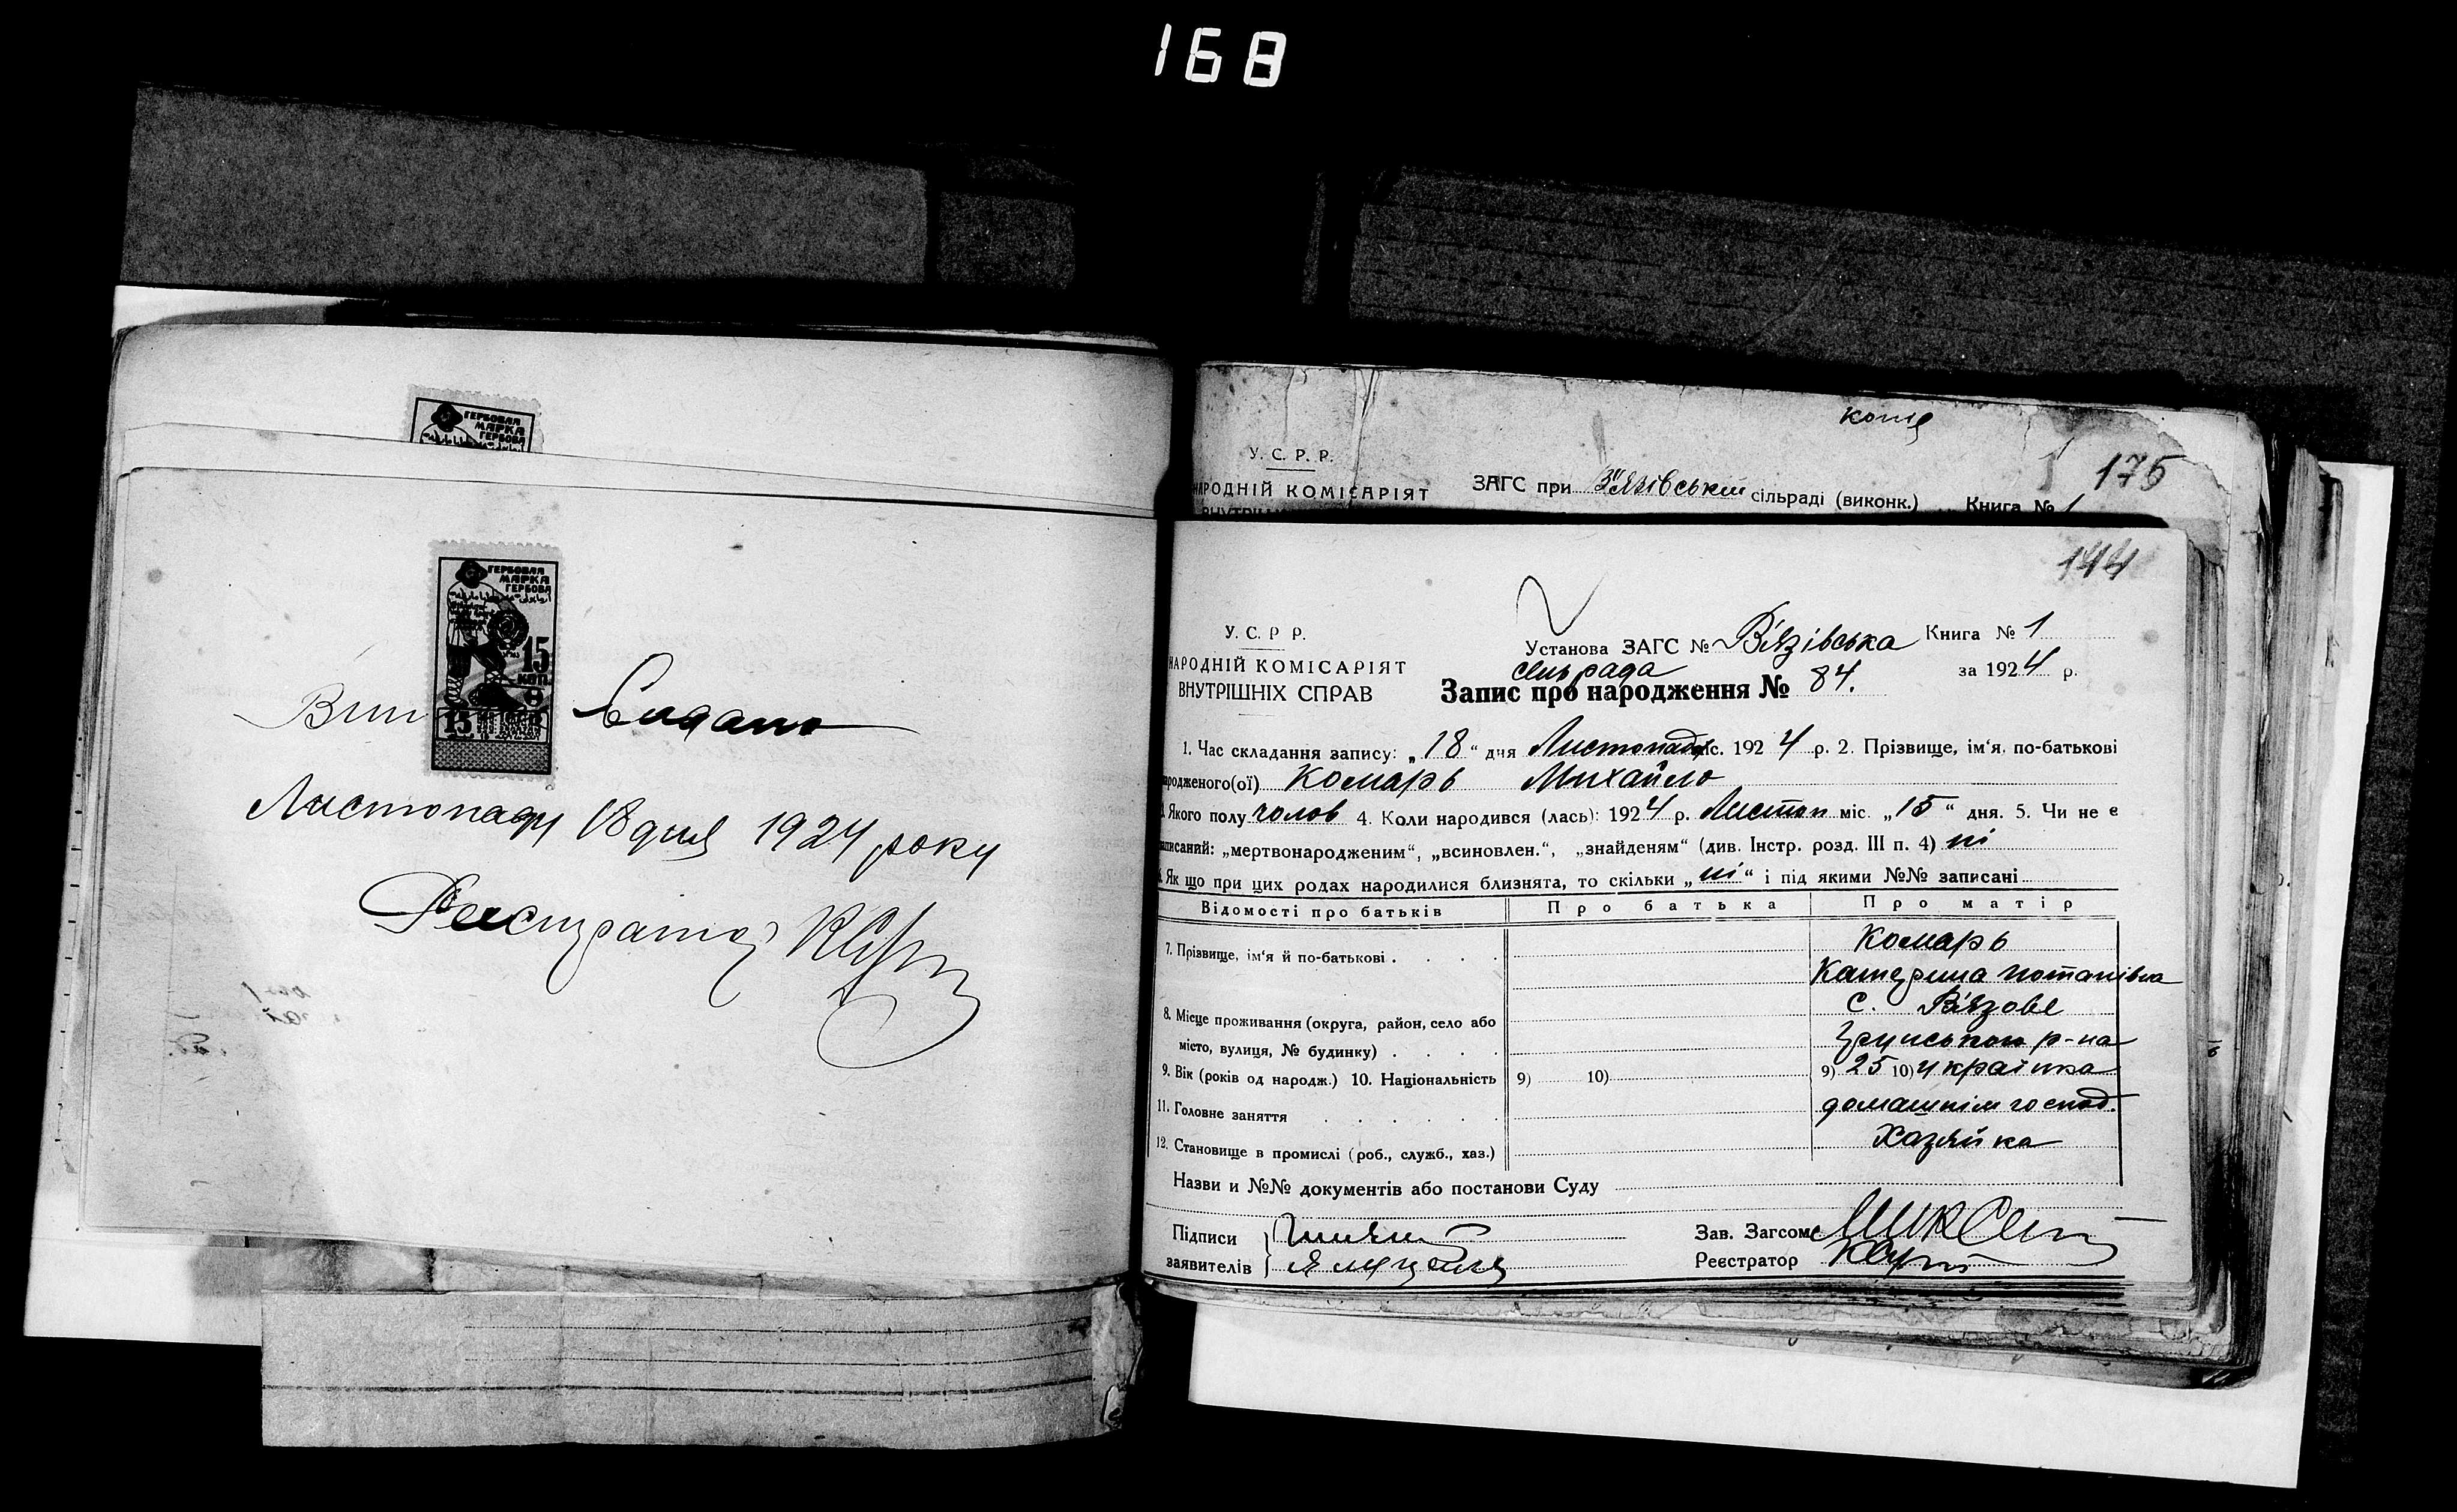 168
ГЕРБОВАЯ
МАРКА
ГЕРБОВА
ГЕРБОВАЯ
МАРКА
ГЕРБОВА
15
КОП.
15
Вип Видано
Листопаду 18 дня 1924 року
Реєстратор
копія
У. С. Р. Р.
175
НАРОДНІЙ КОМІСАРІЯТ
ЗАГС при В'язівській сільраді (виконк.) Книга № 1
144
У. С. Р. Р.
Установа ЗАГС № В'язівська Книга № 1
НАРОДНІЙ КОМІСАРІЯТ
сельрада
за 1924 р.
ВНУТРІШНІХ СПРАВ
Запис про народження № 84.
1. Час складання запису: „18“ дня Листопада міс. 1924 р. 2. Прізвище, ім'я, по-батькові
народженого(ої) Комарь Михайло
Якого полу чолов 4. Коли народився (лась): 1924 р. Листоп міс. „15“ дня. 5. Чи не є
записаний: „мертвонародженим“, „всиновлен.“, „знайденям“ (див. Інстр. розд. III п. 4) ні
Як що при цих родах народилися близнята, то скільки „ні“ і під якими №№ записані
Відомості про батьків Про батька Про матір
7. Прізвище, ім'я й по-батькові . . . .
Комарь
Катерина Потапівна
8. Місце проживання (округа, район, село або
с. В'язове
місто, вулиця, № будинку) . . . .
р-на
9. Вік (років од народж.) 10. Національність 9) 10) 9) 25 10) українка
11. Головне заняття . . . . . домашнім господ.
12. Становище в промислі (роб., служб., хаз.) Хазяйка
Назви и №№ документів або постанови Суду
Підписи
Зав. Загсом
заявителів
Реєстратор